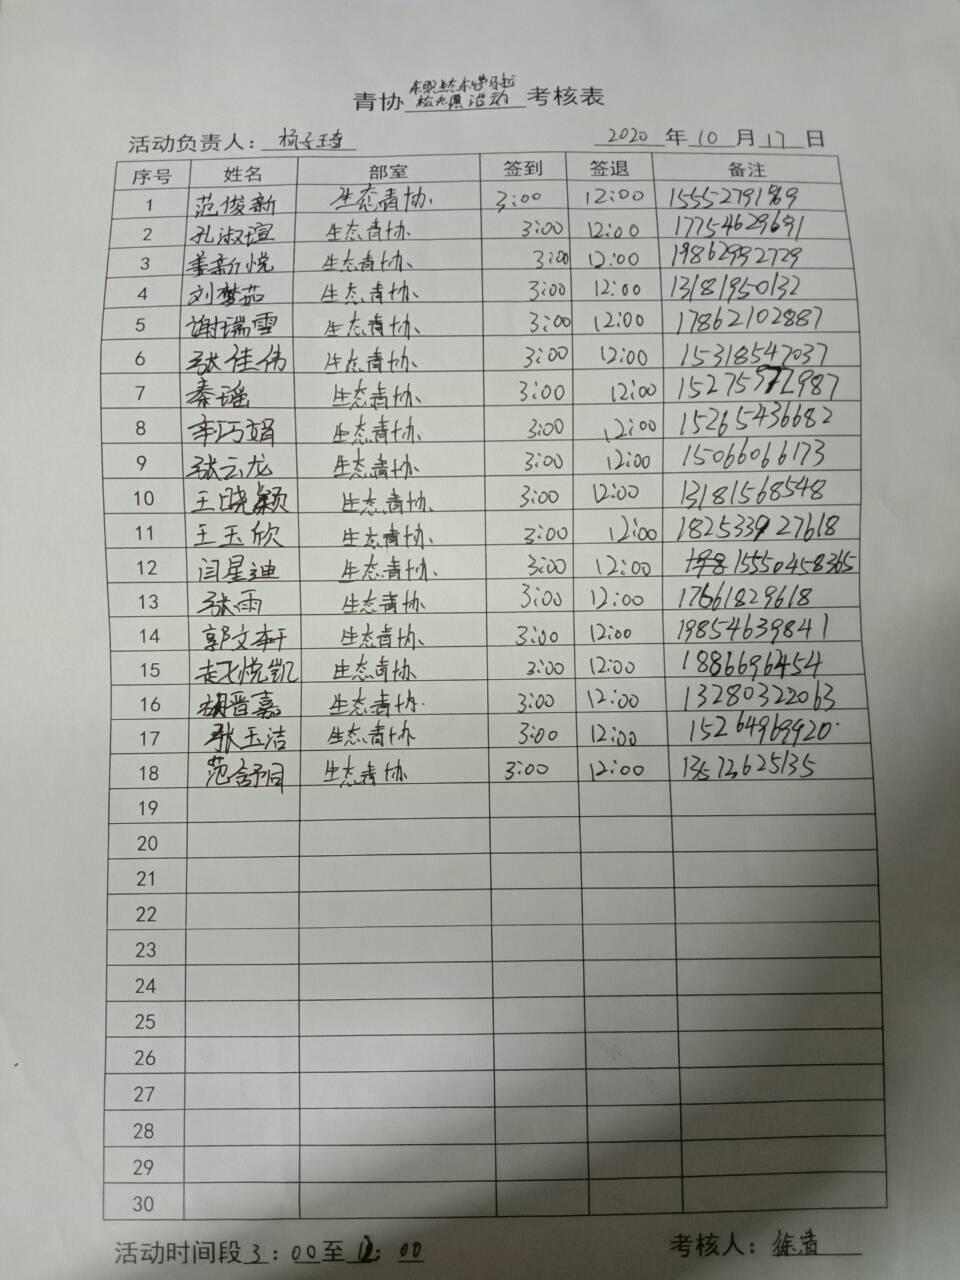 青协 活动 考核表
活动负责人： 2020 年 10 月 17 日
序号 姓名 部室 签到 签退 备注
1 范俊新 生态青协 3:00 12:00
2 孔淑瑄 生态青协 3:00 12:00 17754629691
3 姜新悦 生态青协 3:00 12:00 19862992729
4 刘梦茹 生态青协 3:00 12:00 13181950132
5 谢瑞雪 生态青协 3:00 12:00 17862102887
6 张佳伟 生态青协 3:00 12:00 15318547037
7 秦瑶 生态青协 3:00 12:00 15275972987
8 辛巧娟 生态青协 3:00 12:00 15265436682
9 张云龙 生态青协 3:00 12:00 15066066173
10 王晓颖 生态青协 3:00 12:00 13181568548
11 王玉欣 生态青协 3:00 12:00
12 闫星迪 生态青协 3:00 12:00 15550458365
13 张雨 生态青协 3:00 12:00 17661829618
14 郭文轩 生态青协 3:00 12:00 19854639841
15 赵悦凯 生态青协 3:00 12:00
16 胡晋嘉 生态青协 3:00 12:00 13280322063
17 张玉洁 生态青协 3:00 12:00 15264969920
18 范舒同 生态青协 3:00 12:00 13573625135
19
20
21
22
23
24
25
26
27
28
29
30
活动时间段 3：00至 12：00 考核人：徐青